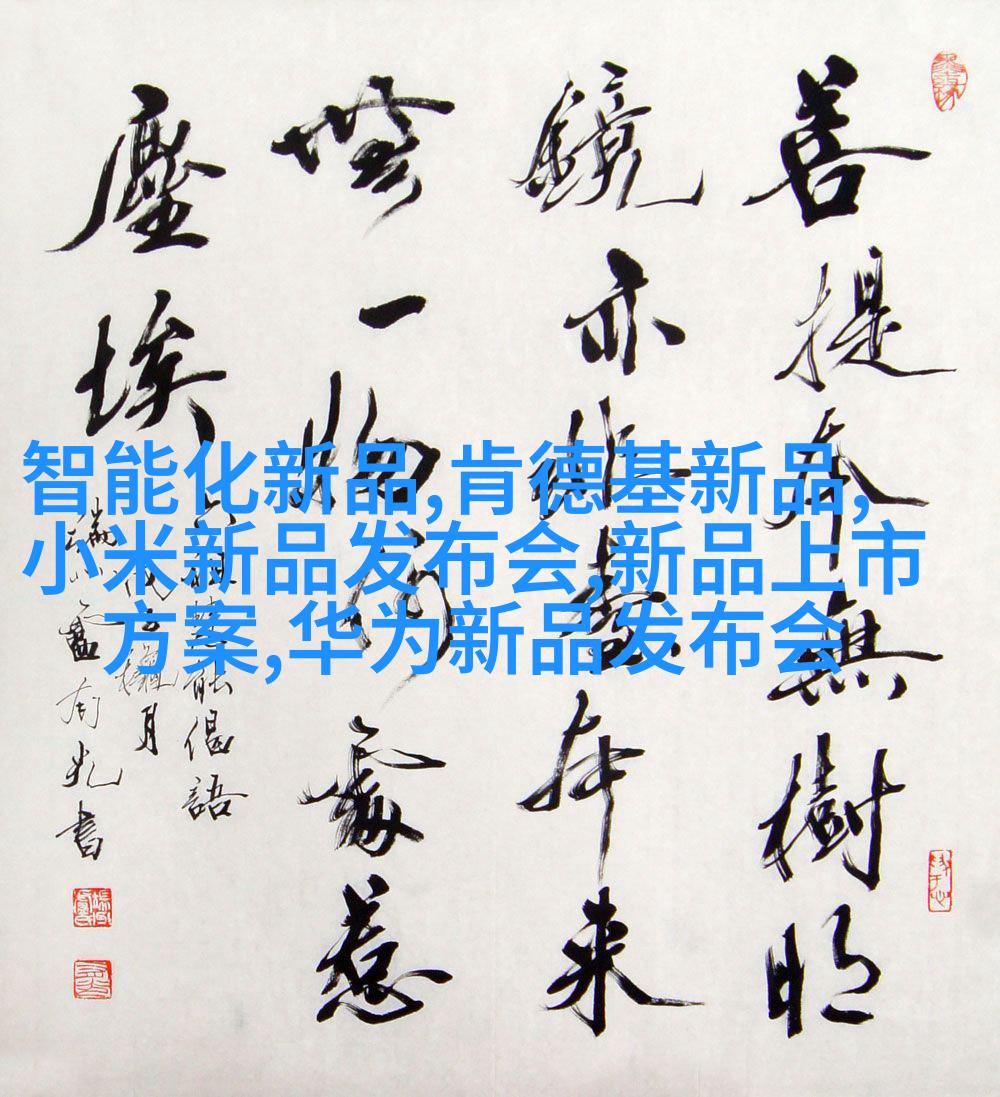 菩提本無樹明
鏡亦非臺本来
無一物何處惹
塵埃
六祖慧能偈語
月
書
智能化新品,肯德基新品,
小米新品发布会,新品上市
方案,华为新品发布会